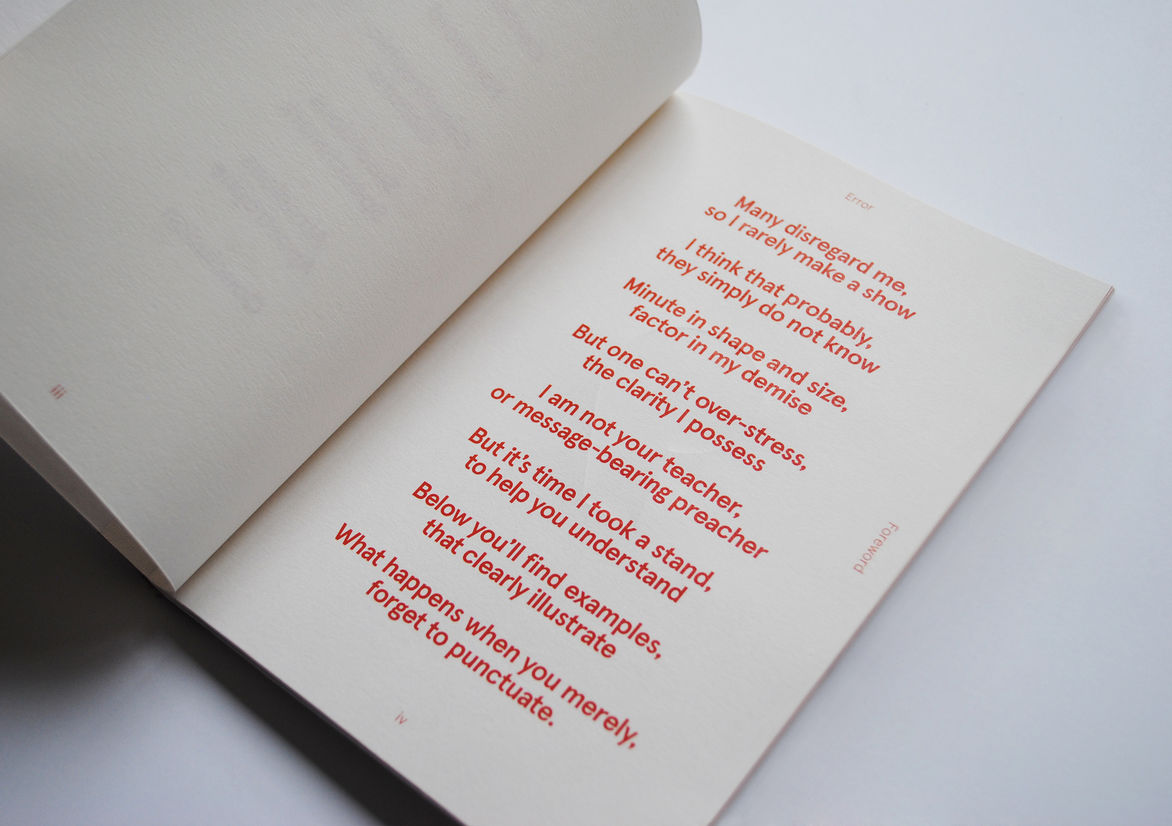 iii
Error
Many disregard me,
so I rarely make a show
I think that probably,
they simply do not know
Minute in shape and size,
factor in my demise
But one can't over-stress,
the clarity I possess
I am not your teacher,
or message-bearing preacher
But it's time I took a stand,
to help you understand
Below you'll find examples,
that clearly illustrate
What happens when you merely,
forget to punctuate.
Foreword
iv